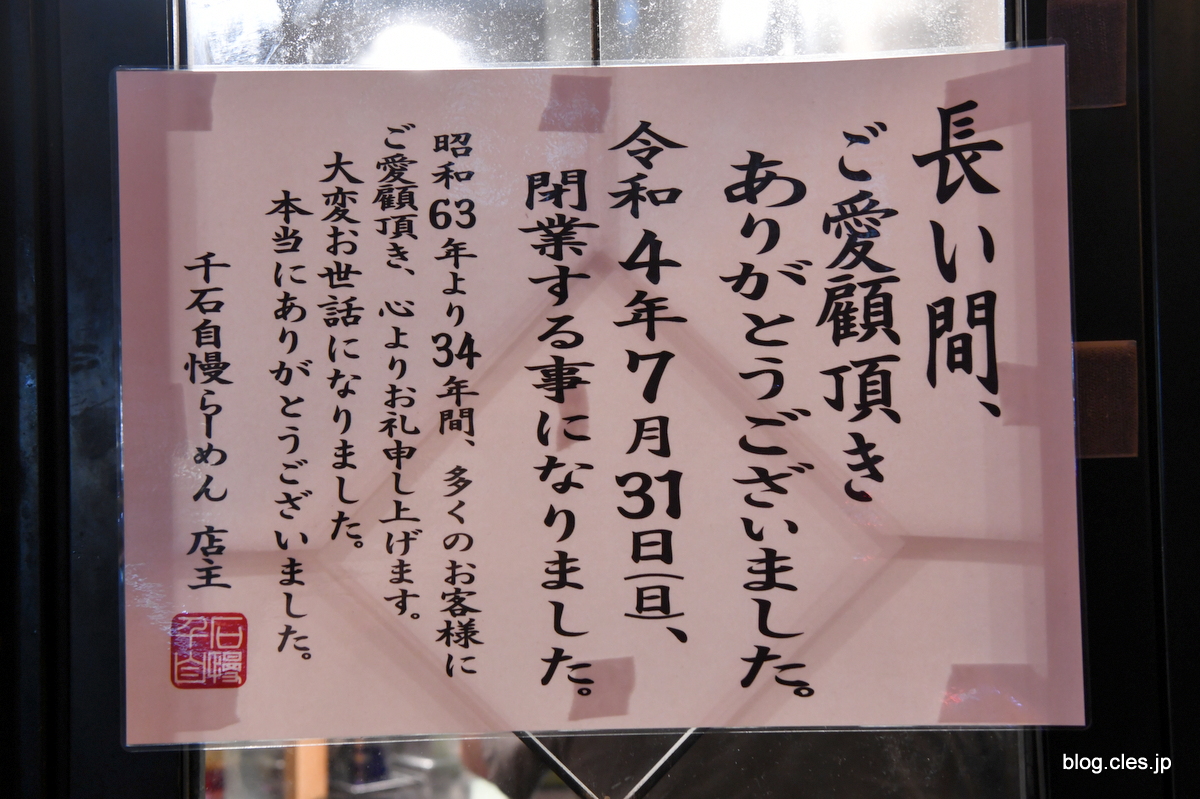 長い間、
ご愛顧頂き
ありがとうございました。
令和4年7月31日(日)、
閉業する事になりました。
昭和63年より34年間、多くのお客様に
ご愛顧頂き、心よりお礼申し上げます。
大変お世話になりました。
本当にありがとうございました。
千石自慢らーめん 店主
千石自慢
blog.cles.jp